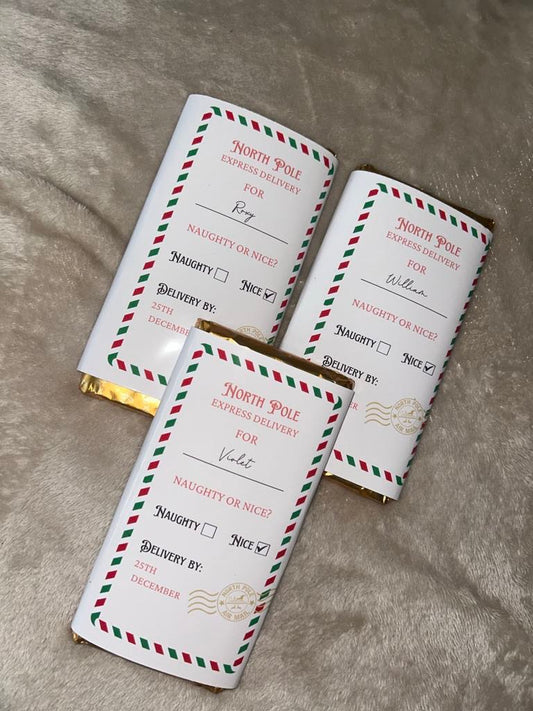 North Pole
EXPRESS DELIVERY
FOR
Roxy
NAUGHTY OR NICE?
Naughty Nice
Delivery by:
25TH
DECEMBER
North Pole
EXPRESS DELIVERY
FOR
William
NAUGHTY OR NICE?
Naughty Nice
Delivery by:
NORTH POLE
AIR MAIL
North Pole
EXPRESS DELIVERY
FOR
Violet
NAUGHTY OR NICE?
Naughty Nice
Delivery by:
25TH
DECEMBER
NORTH POLE
AIR MAIL